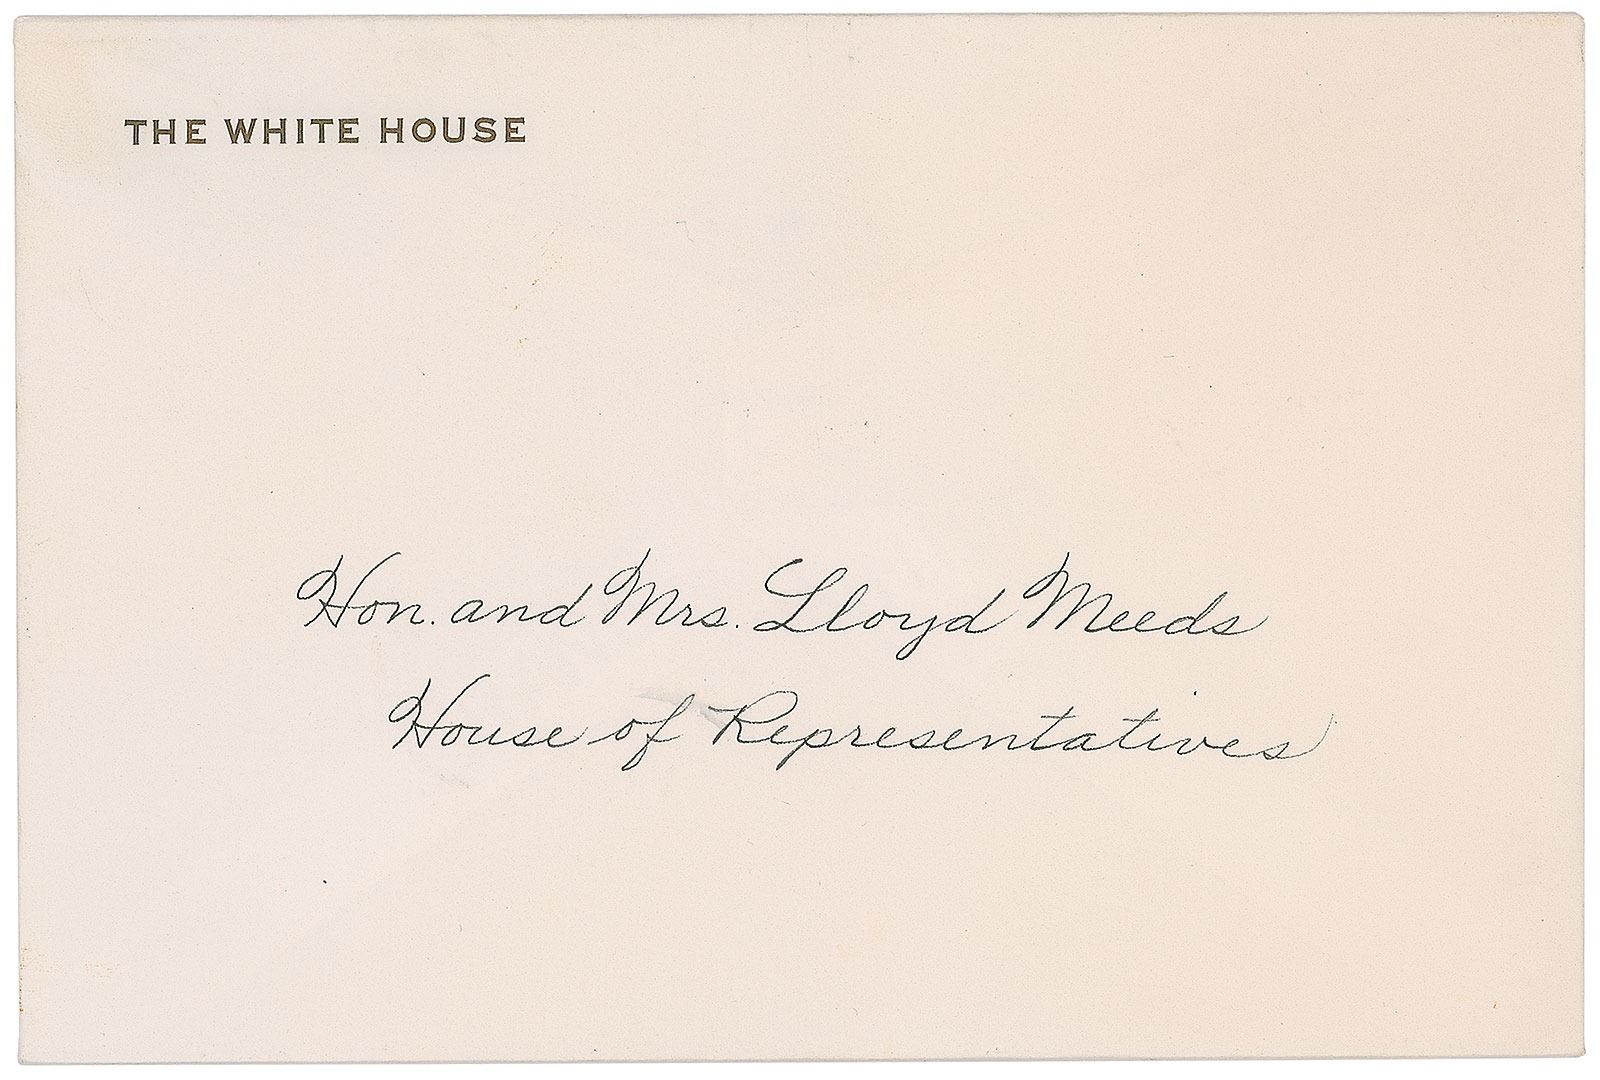 THE WHITE HOUSE
Hon. and Mrs. Lloyd Meeds
House of Representatives